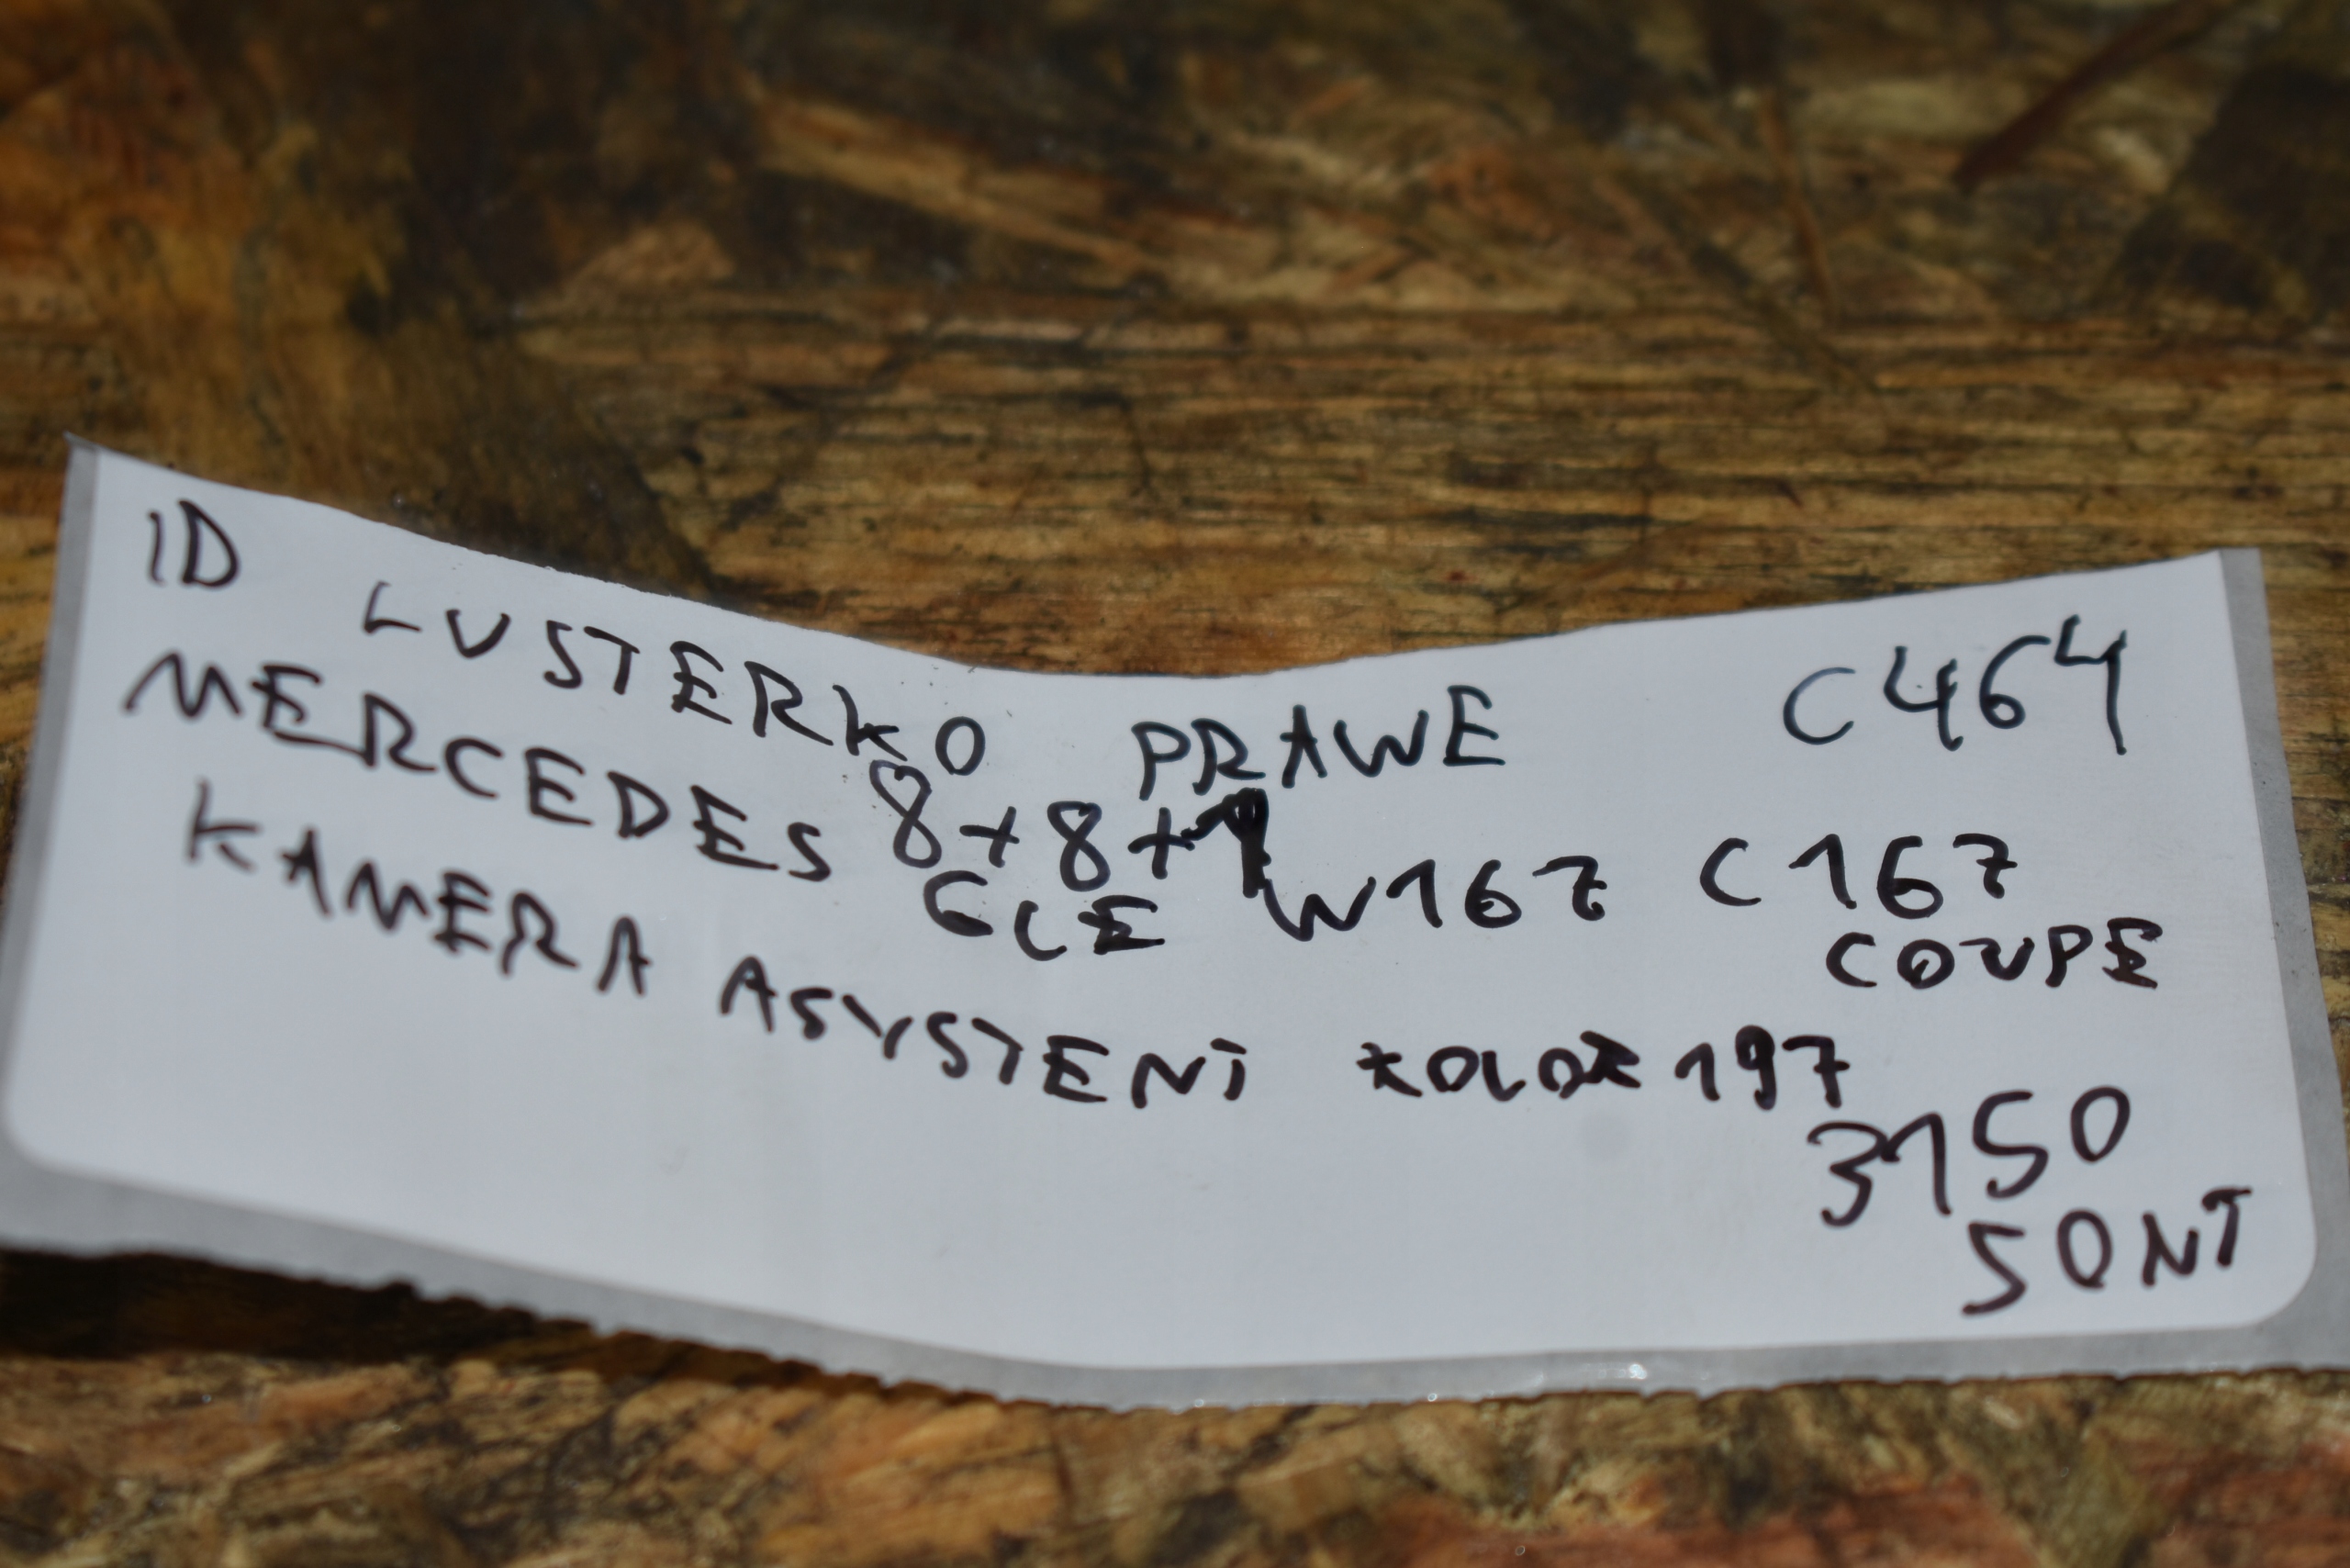 ID LUSTERKO PRAWE C464
8+8+1
MERCEDES GLE W167 C167
COUPE
KAMERA ASYSTENT KOLOR 197
3150
SONT